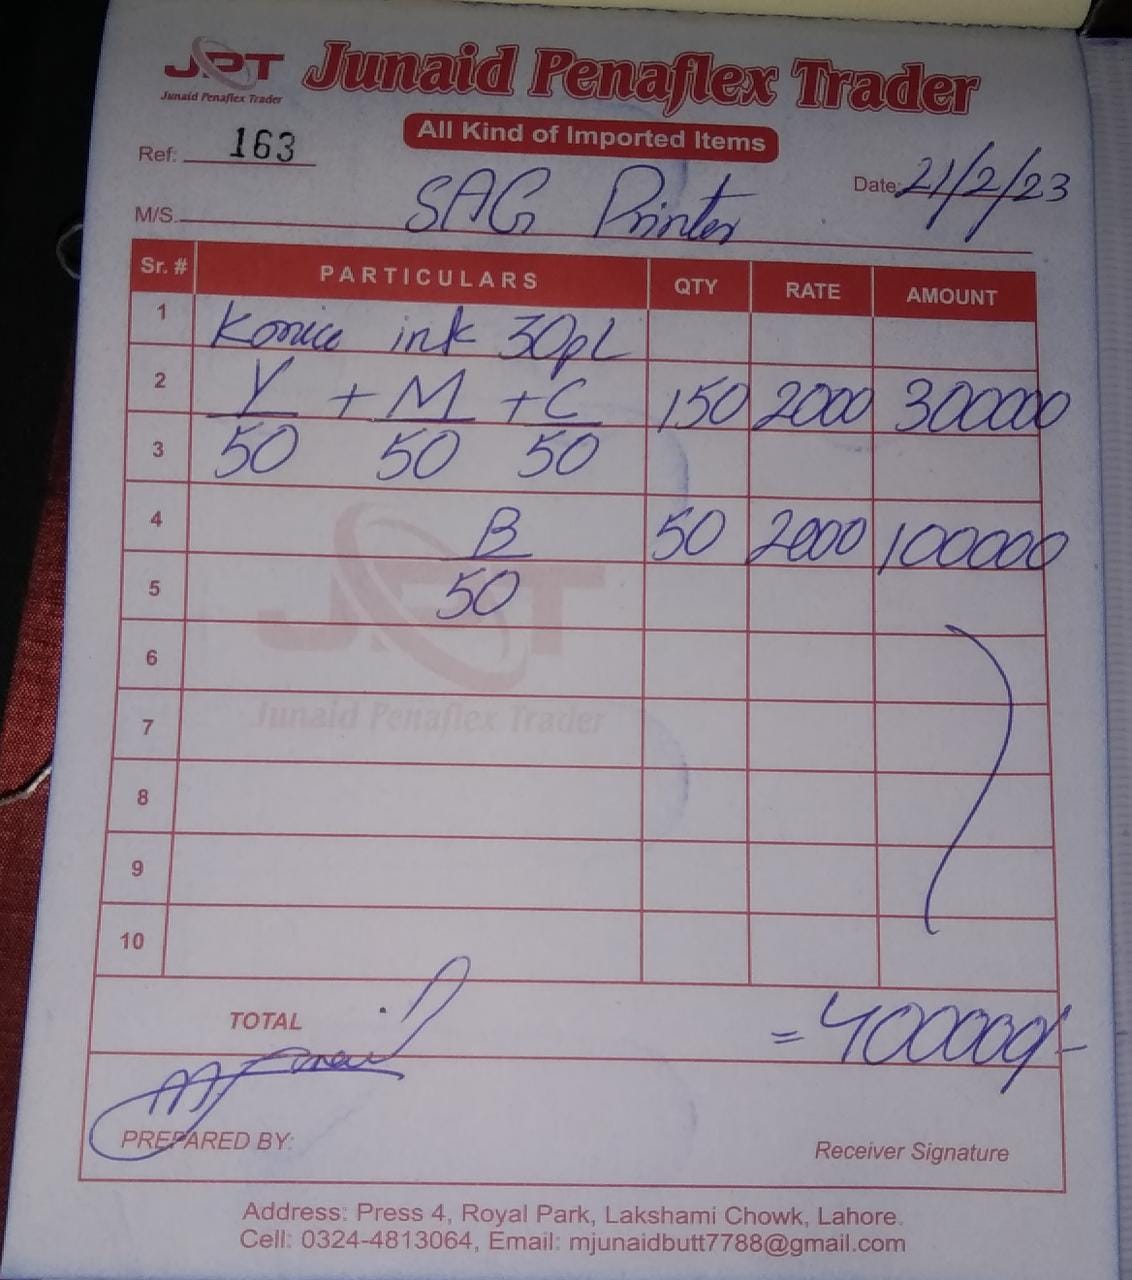 JPT Junaid Penaflex Trader
Junaid Penaflex Trader
All Kind of Imported Items
Ref: 163
Date: 21/2/23
M/S. SAG Printer
Sr. # PARTICULARS QTY RATE AMOUNT
1 Konica ink 30pL
2 Y + M + C 150 2000 300000
3 50 50 50
4 B 50 2000 100000
5 50
JPT
6
7 Junaid Penaflex Trader
8
9
10
TOTAL = 400000/-
PREPARED BY:
Receiver Signature
Address: Press 4, Royal Park, Lakshami Chowk, Lahore.
Cell: 0324-4813064, Email: mjunaidbutt7788@gmail.com